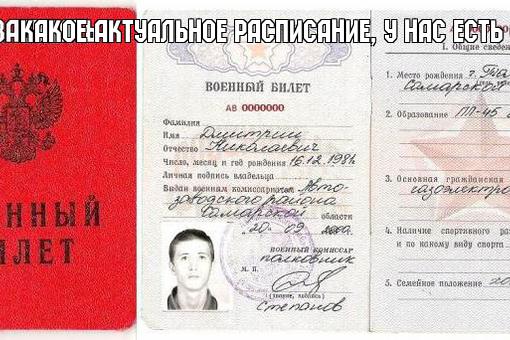 ЗАКАКОЕ АКТУАЛЬНОЕ РАСПИСАНИЕ, У НАС ЕСТЬ
ННЫЙ
ЛЕТ
ВОЕННЫЙ БИЛЕТ
АВ 0000000
Фамилия
Имя Дмитрий
Отчество Николаевич
Число, месяц и год рождения 16.12.198
Личная подпись владельца
Выдан военным комиссариатом Авто-
заводского района
Самарской области
20 09
ВОЕННЫЙ КОМИССАР
полковник
М. П.
(звание, подпись)
Степанов
I. Общие сведен
1. Место рождения г.
Самарской
2. Образование ПЛ-45
3. Основная гражданская
газоэлектро
4. Наличие спортивного раз
и по какому виду спорта
5. Семейное положение